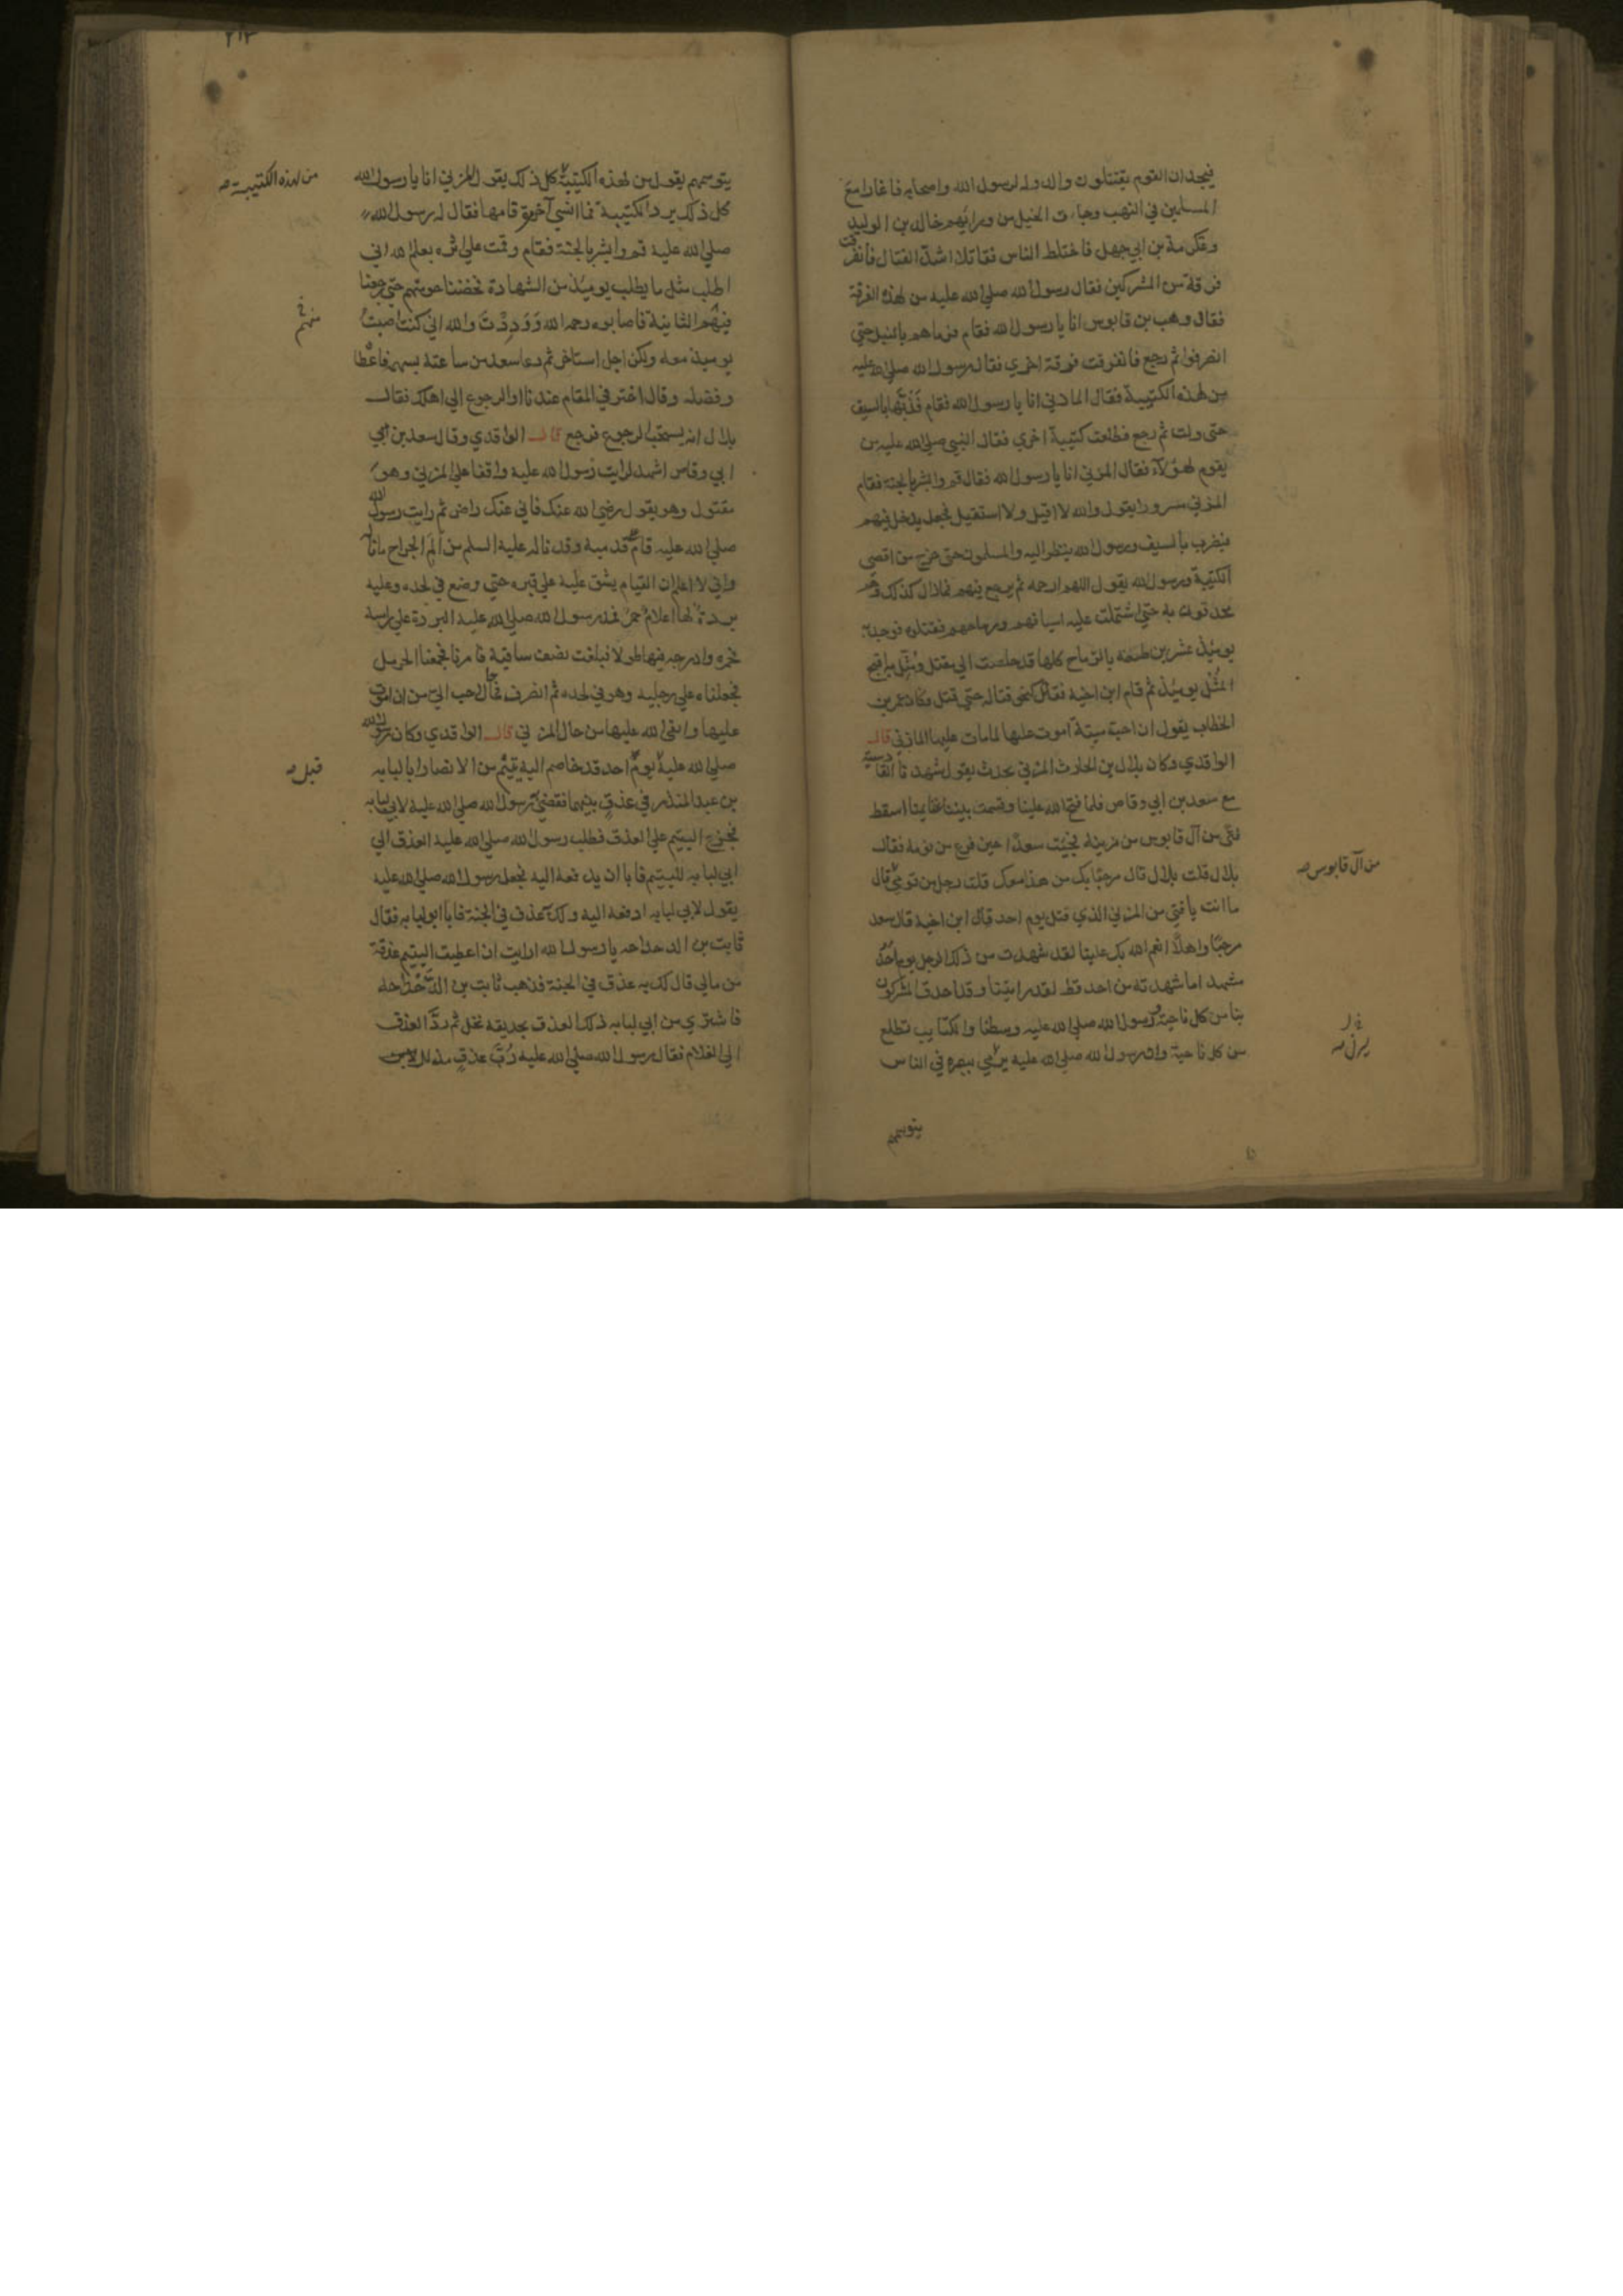 فيجدان القوم يقتتلون والدولة لرسول الله واصحابه فاغارا مع
المسلمين في النهب وجاءت الخيل من ورائهم خالد بن الوليد
وعكرمة بن ابي جهل فاختلط الناس فقاتلا اشد القتال فانفرقت
فرقة من المشركين فقال رسول الله صلى الله عليه من لهذه الفرقة
فقال وهب بن قابوس انا يا رسول الله فقام فرماهم بالنبل حتي
انصرفوا ثم رجع فانفرقت فرقة اخري فقال رسول الله صلى الله عليه
من لهذه الكتيبة فقال المازني انا يا رسول الله فقام فذبها بالسيف
حتى ولت ثم رجع فطلعت كتيبة اخري فقال النبي صلى الله عليه من
يقوم لهؤلآء فقال المزني انا يا رسول الله فقال قم وابشر بالجنة فقام
المزني مسرورا يقول والله لا اقيل ولا استقيل فجعل يدخل فيهم
فيضرب بالسيف ورسول الله ينظر اليه والمسلمون حتى خرج من اقصي
الكتيبة ورسول الله يقول اللهم ارحمه ثم يرجع فيهم فمازال كذلك وهم
محدقون به حتي اشتملت عليه اسيافهم ورماحهم فقتلوه فوجد به
يومئذ عشرين طعنة بالرماح كلها قد خلصت الي مقتل ومُثّل به اقبح
المُثَل يومئذ ثم قام ابن اخيه فقاتل كنحو قتاله حتي قتل وكان عمر بن
الخطاب يقول ان احب ميتة اموت عليها لما مات عليها المازني قال
الواقدي وكان بلال بن الحارث المزني يحدث يقول شهدنا القادسية
مع سعد بن ابي وقاص فلما فتح الله علينا وقسمت بيننا غنايمنا اسقط
فتى من آل قابوس من مزينة فجئت سعدًا حين فرغ من نومه فقال
بلال قلت بلال قال مرحبًا بك من هذا معك قلت رجل من قومي قال
من آل قابوس صح
ما انت يا فتي من المزني الذي قتل يوم احد قال ابن اخيه قال سعد
مرحبًا واهلًا انعم الله بك علينا لقد شهدت من ذلك الرجل يوم احد
مشهد اما شهدته من احد قط لقد رايتنا وقد احدق المشركون
بنا من كل ناحية ورسول الله صلى الله عليه وسطنا والكتايب تطلع
من كل ناحية وان رسول الله صلى الله عليه يرمي ببصره في الناس
يتوسمهم
٢١٣
يتوسمهم يقول من لهذه الكتيبة كل ذلك يقول المزني انا يا رسول الله
من لهذه الكتيبة صح
كل ذلك يرد الكتيبة فما انسي آخر مرة قامها فقال له رسول الله
صلى الله عليه قم وابشر بالجنة فقام وقمت علي اثره يعلم الله اني
اطلب مثل ما يطلب يومئذ من الشهادة فخضنا حومتهم حتي رجعنا
فيهم الثانية فاصابوه رحمه الله وَوَدِدْتُ والله اني كنت اصبتُ
منهم
يوميذ معه ولكن اجل استاخر ثم دعا سعد من ساعته بسهمه فاعطا
وفضله وقال اختر في المقام عندنا او الرجوع الي اهلك فقال
بلال انه يستحب الرجوع فرجع قال الواقدي وقال سعد بن ابي
ابي وقاص اشهد لرايت رسول الله عليه واقفا علي المزني وهو
مقتول وهو يقول رضي الله عنك فاني عنك راض ثم رايت رسول الله
صلى الله عليه قام على قدميه وقد ناله عليه السلم من ألم الجراح ما ناله
واني لا اعلم ان القيام يشق عليه علي قبره حتي وضع في لحده وعليه
بردة لها اعلام حمر فمد رسول الله صلى الله عليه البردة علي راسه
فخمره وادرجه فيها طولا فبلغت نصف ساقيه فامرنا فجمعنا الحرمل
فجعلناه علي رجليه وهو في لحده ثم انصرف فما حال احب الي من ان اموت
عليها والقى الله عليها من حال المزني قال الواقدي وكان رسول الله
صلى الله عليه يوم احد قد خاصم اليه يتيم من الانصار ابا لبابه
قبل صح
بن عبد المنذر في عذق بينهما فقضى رسول الله صلى الله عليه لابي لبابه
فجزع اليتيم علي العذق فطلب رسول الله صلى الله عليه العذق الي
ابي لبابه لليتيم فابا ان يدفعه اليه فجعل رسول الله صلى الله عليه
يقول لابي لبابه ادفعه اليه ولك عذق في الجنة فابا ابو لبابه فقال
ثابت بن الدحداحه يا رسول الله ارايت ان اعطيت اليتيم عذقه
من مالي قال لك به عذق في الجنة فذهب ثابت بن الدَّحْدَاحه
فاشتري من ابي لبابه ذلك العذق بحديقه نخل ثم ردّ العذق
الى الغلام فقال رسول الله صلى الله عليه رُبَّ عذقٍ مذلل لابن